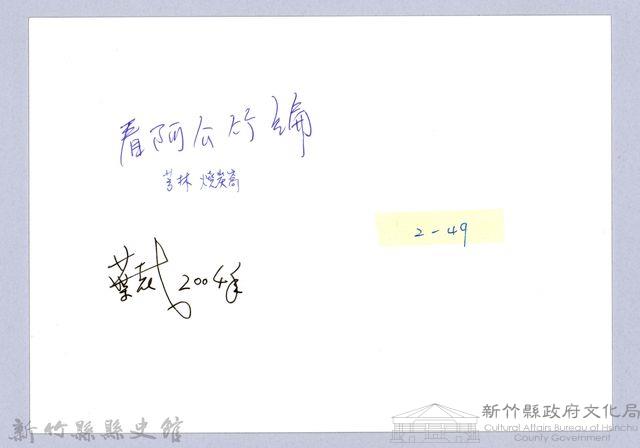 看阿公竹編
芎林 燒炭窩
2-49
葉 2004年
新竹縣縣史館
新竹縣政府文化局
Cultural Affairs Bureau of Hsinchu
County Government